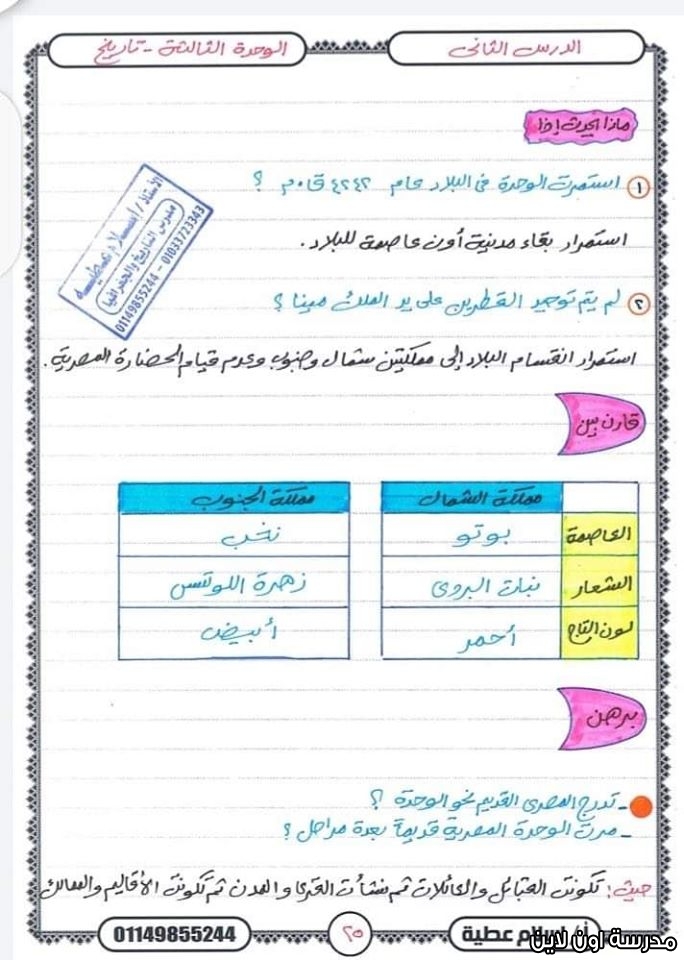 الدرس الثانى
الوحدة الثالثة - تاريخ
ماذا يحدث إذا
١ استمرت الوحدة فى البلاد عام ٤٢٤٢ ق.م ؟
استمرار بقاء مدينة أون عاصمة للبلاد.
٢ لم يتم توحيد القطرين على يد الملك مينا ؟
استمرار انقسام البلاد إلى مملكتين شمال وجنوب وعدم قيام الحضارة المصرية.
الأستاذ / إسلام عطية
مدرس التاريخ والجغرافيا
01149855244 - 01033723343
قارن بين
مملكة الشمال مملكة الجنوب
العاصمة بوتو نخب
الشعار نبات البردى زهرة اللوتس
لون التاج أحمر أبيض
برهن
- تدرج المصرى القديم نحو الوحدة ؟
- مرت الوحدة المصرية قديماً بعدة مراحل ؟
حيث: تكونت القبائل والعائلات ثم نشأت القرى والمدن ثم تكونت الأقاليم والممالك
أ/ إسلام عطية
٢٥
01149855244
مدرسة اون لاين